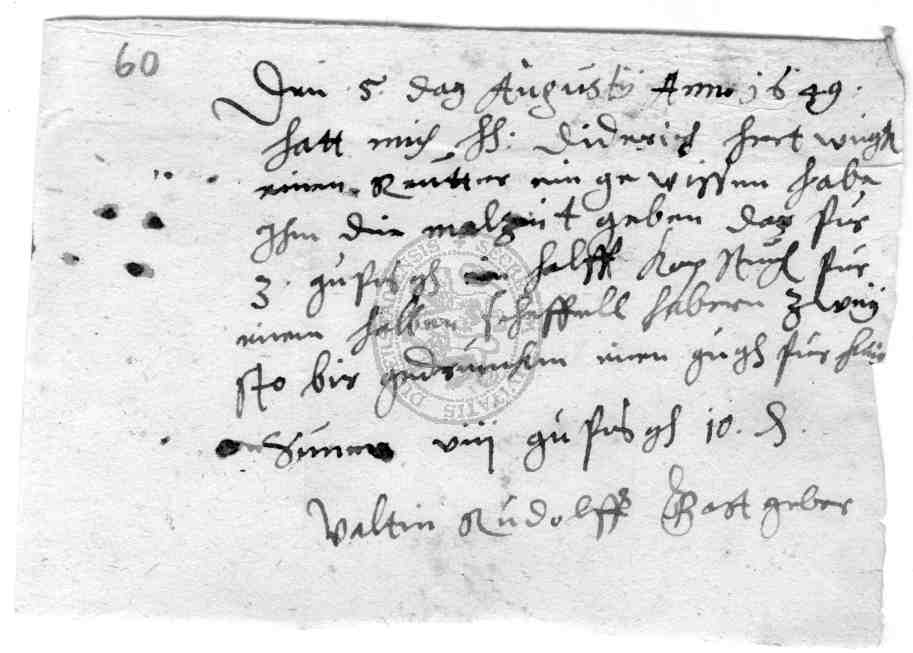 60
Den 5. dag Augusty Anno 1649.
hatt mich hh: Diderich hertwigh
einen Reutter ein gewissen habe
Ihm die malzeit geben dag für
3. gu gh ein halff für
einem halben scheffell habern zwey
sto bir gedruncken einen gugh für
Summa viij gu gh 10. d.
Valtin Rudolff Gastgeber